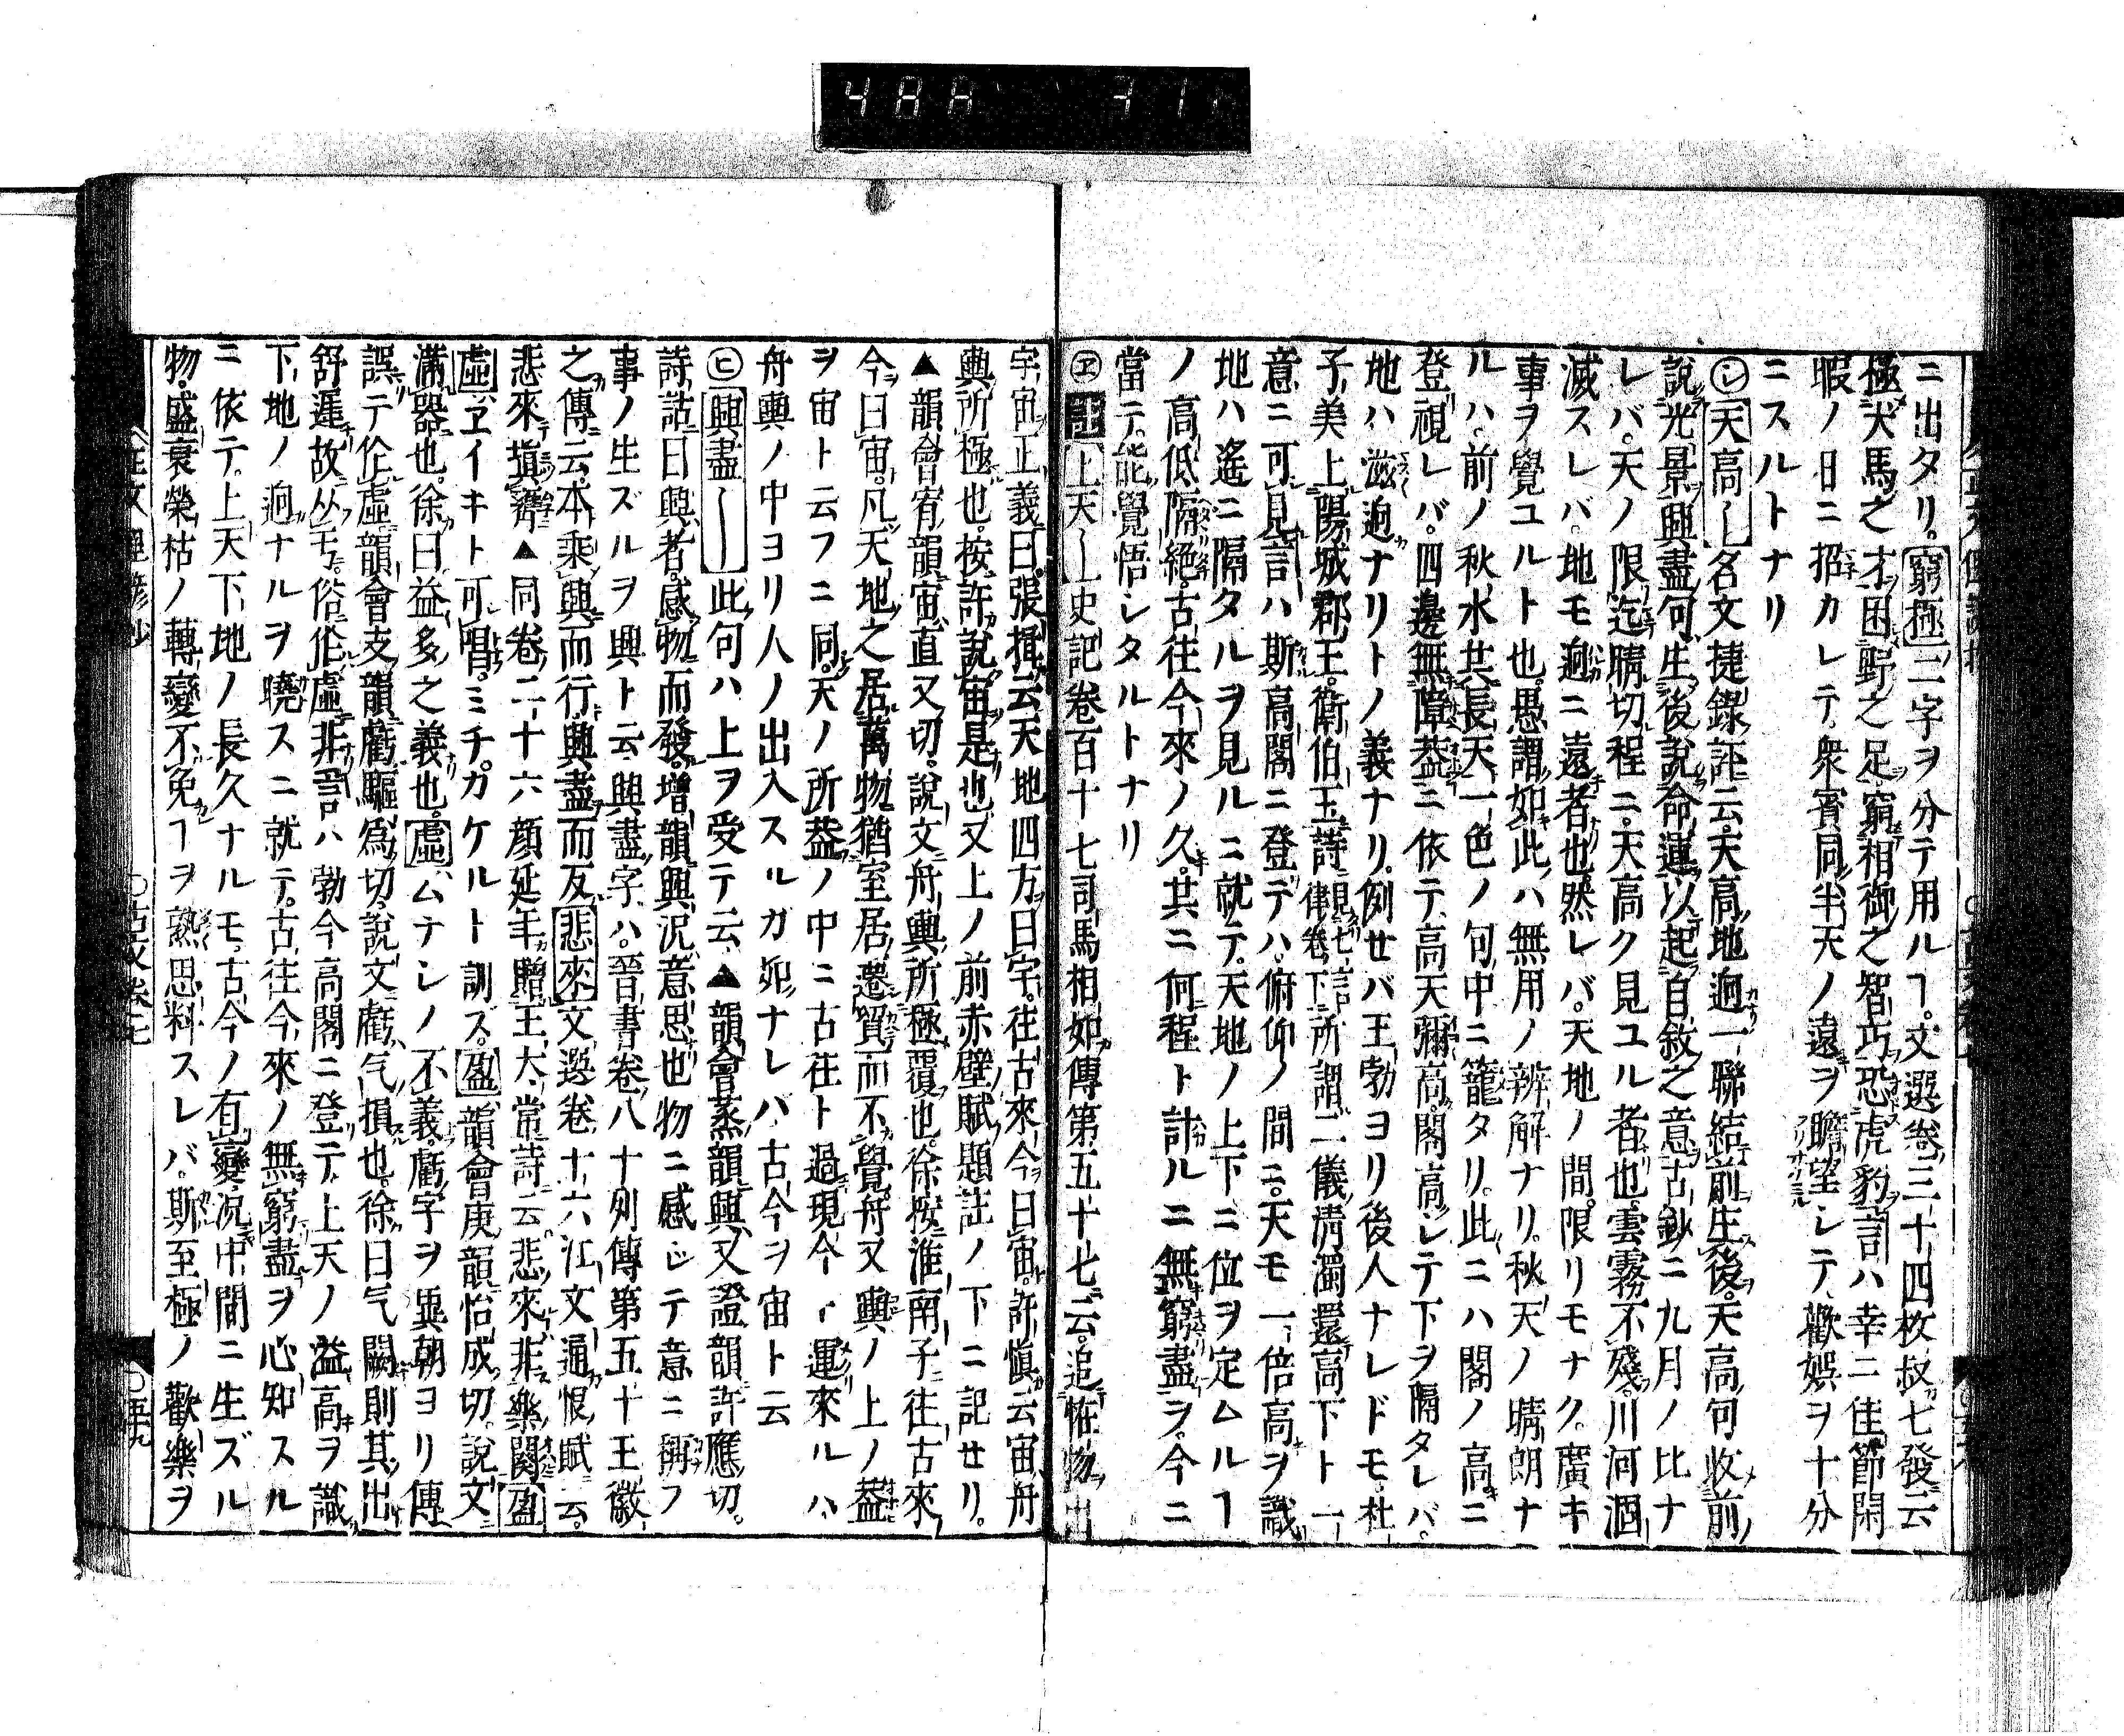 ニ出タリ。窮極二字ヲ分テ用ルヿ。文選卷三十四枚叔七發云
極犬馬之才困野之足窮相御之智巧恐虎豹言ハ幸ニ佳節閑
暇ノ日ニ招カレテ衆賓同半天ノ遠ヲ瞻望シテ歡娯ヲ十分
ニスルトナリ
㋹天高〡名文捷錄註云天高地逈一聯結前生後天高句收前
說光景興盡句生後說命運以起自敘之意古鈔ニ九月ノ比ナ
レバ天ノ限迄晴切程ニ天高ク見ユル者也雲霧不殘川河涸
滅スレバ地モ逈ニ遠者也然レバ天地ノ間限リモナク廣キ
事ヲ覺ユルト也愚謂如此ハ無用ノ辨解ナリ秋天ノ晴朗ナ
ルハ前ノ秋水共長天一色ノ句中ニ籠タリ此ニハ閣ノ高ニ
登視レバ四邊無障葢ニ依テ高天彌高閣高シテ下ヲ隔タレバ
地ハ滋逈ナリトノ義ナリ例セバ王勃ヨリ後人ナレドモ杜
子美上陽城郡王衛伯玉詩見七言律卷下所謂二儀淸濁還高下ト一
意ニ可見言ハ斯高閣ニ登テハ俯仰ノ間ニ天モ一倍高ヲ識
地ハ遙ニ隔タルヲ見ルニ就テ天地ノ上下ニ位ヲ定ムルヿ
ノ高低隔絶古往今來ノ久其ニ何程ト計ルニ無窮盡ヲ今ニ
當テ能覺悟シタルトナリ
㋓上天〡史記卷百十七司馬相如傳第五十七云追怪物出
宇宙正義曰張揖云天地四方曰宇往古來今曰宙許愼云宙舟
輿所極也按許說宙是也又上ノ前赤壁賦題註ノ下ニ記セリ
▲韻會宥韻宙直又切說文舟輿所極覆也徐按淮南子往古來
今曰宙凡天地之居萬物猶室居遷貿而不覺舟又輿ノ上ノ葢
ヲ宙ト云フニ同天ノ所葢ノ中ニ古往ト過現今ト運來ルハ
舟輿ノ中ヨリ人ノ出入スルガ如ナレハ古今ヲ宙ト云
㋪興盡〡此句ハ上ヲ受テ云▲韻會蒸韻興又證韻許應切
詩詁曰興者感物而發增韻興況意思也物ニ感シテ意ニ稱フ
事ノ生ズルヲ興ト云興盡字ハ晉書卷八十列傳第五十王徽
之傳云本乘興而行興盡而反悲來文選卷十六江文通恨賦云
悲來塡膺▲同卷二十六顏延年贈王太常詩云悲來非樂闋盈
虛ヱイキト可唱ミチガケルト訓ズ盈韻會庚韻怡成切說文
滿器也徐曰益多之義也虛ムナシノ不義虧字ヲ異朝ヨリ傳
誤テ作虛韻會支韻虧驅爲切說文虧气損也徐曰气闕則其出
舒遲故从亏俗作虛非言ハ勃今高閣ニ登テ上天ノ益高ヲ識
下地ノ逈ナルヲ曉スニ就テ古往今來ノ無窮盡ヲ心知スル
ニ依テ上天下地ノ長久ナルモ古今ノ有變況中間ニ生ズル
物盛衰榮枯ノ轉變不免ヿヲ熟思料スレバ斯至極ノ歡樂ヲ